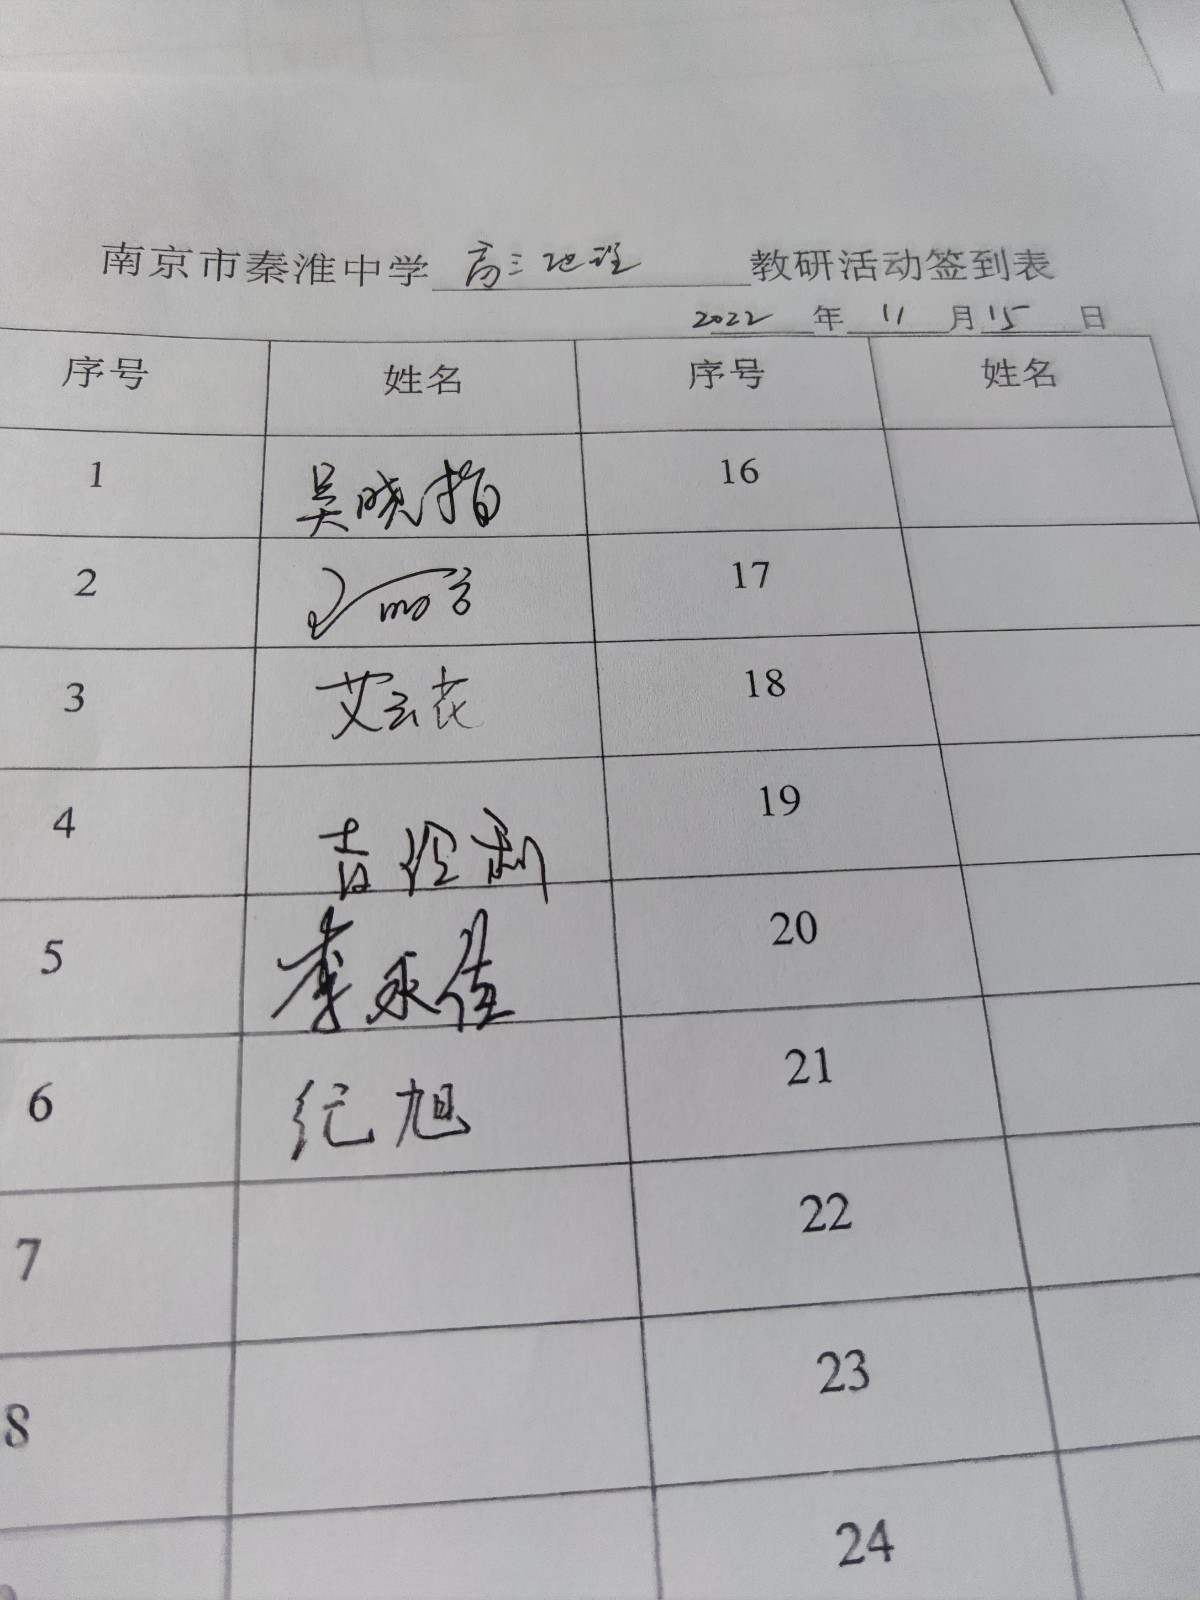 南京市秦淮中学 高三地理 教研活动签到表
2022 年 11 月 15 日
序号 姓名 序号 姓名
1 吴晓 16
2 17
3 艾云花 18
4 吉 利 19
5 李永佳 20
6 纪旭 21
7 22
8 23
24